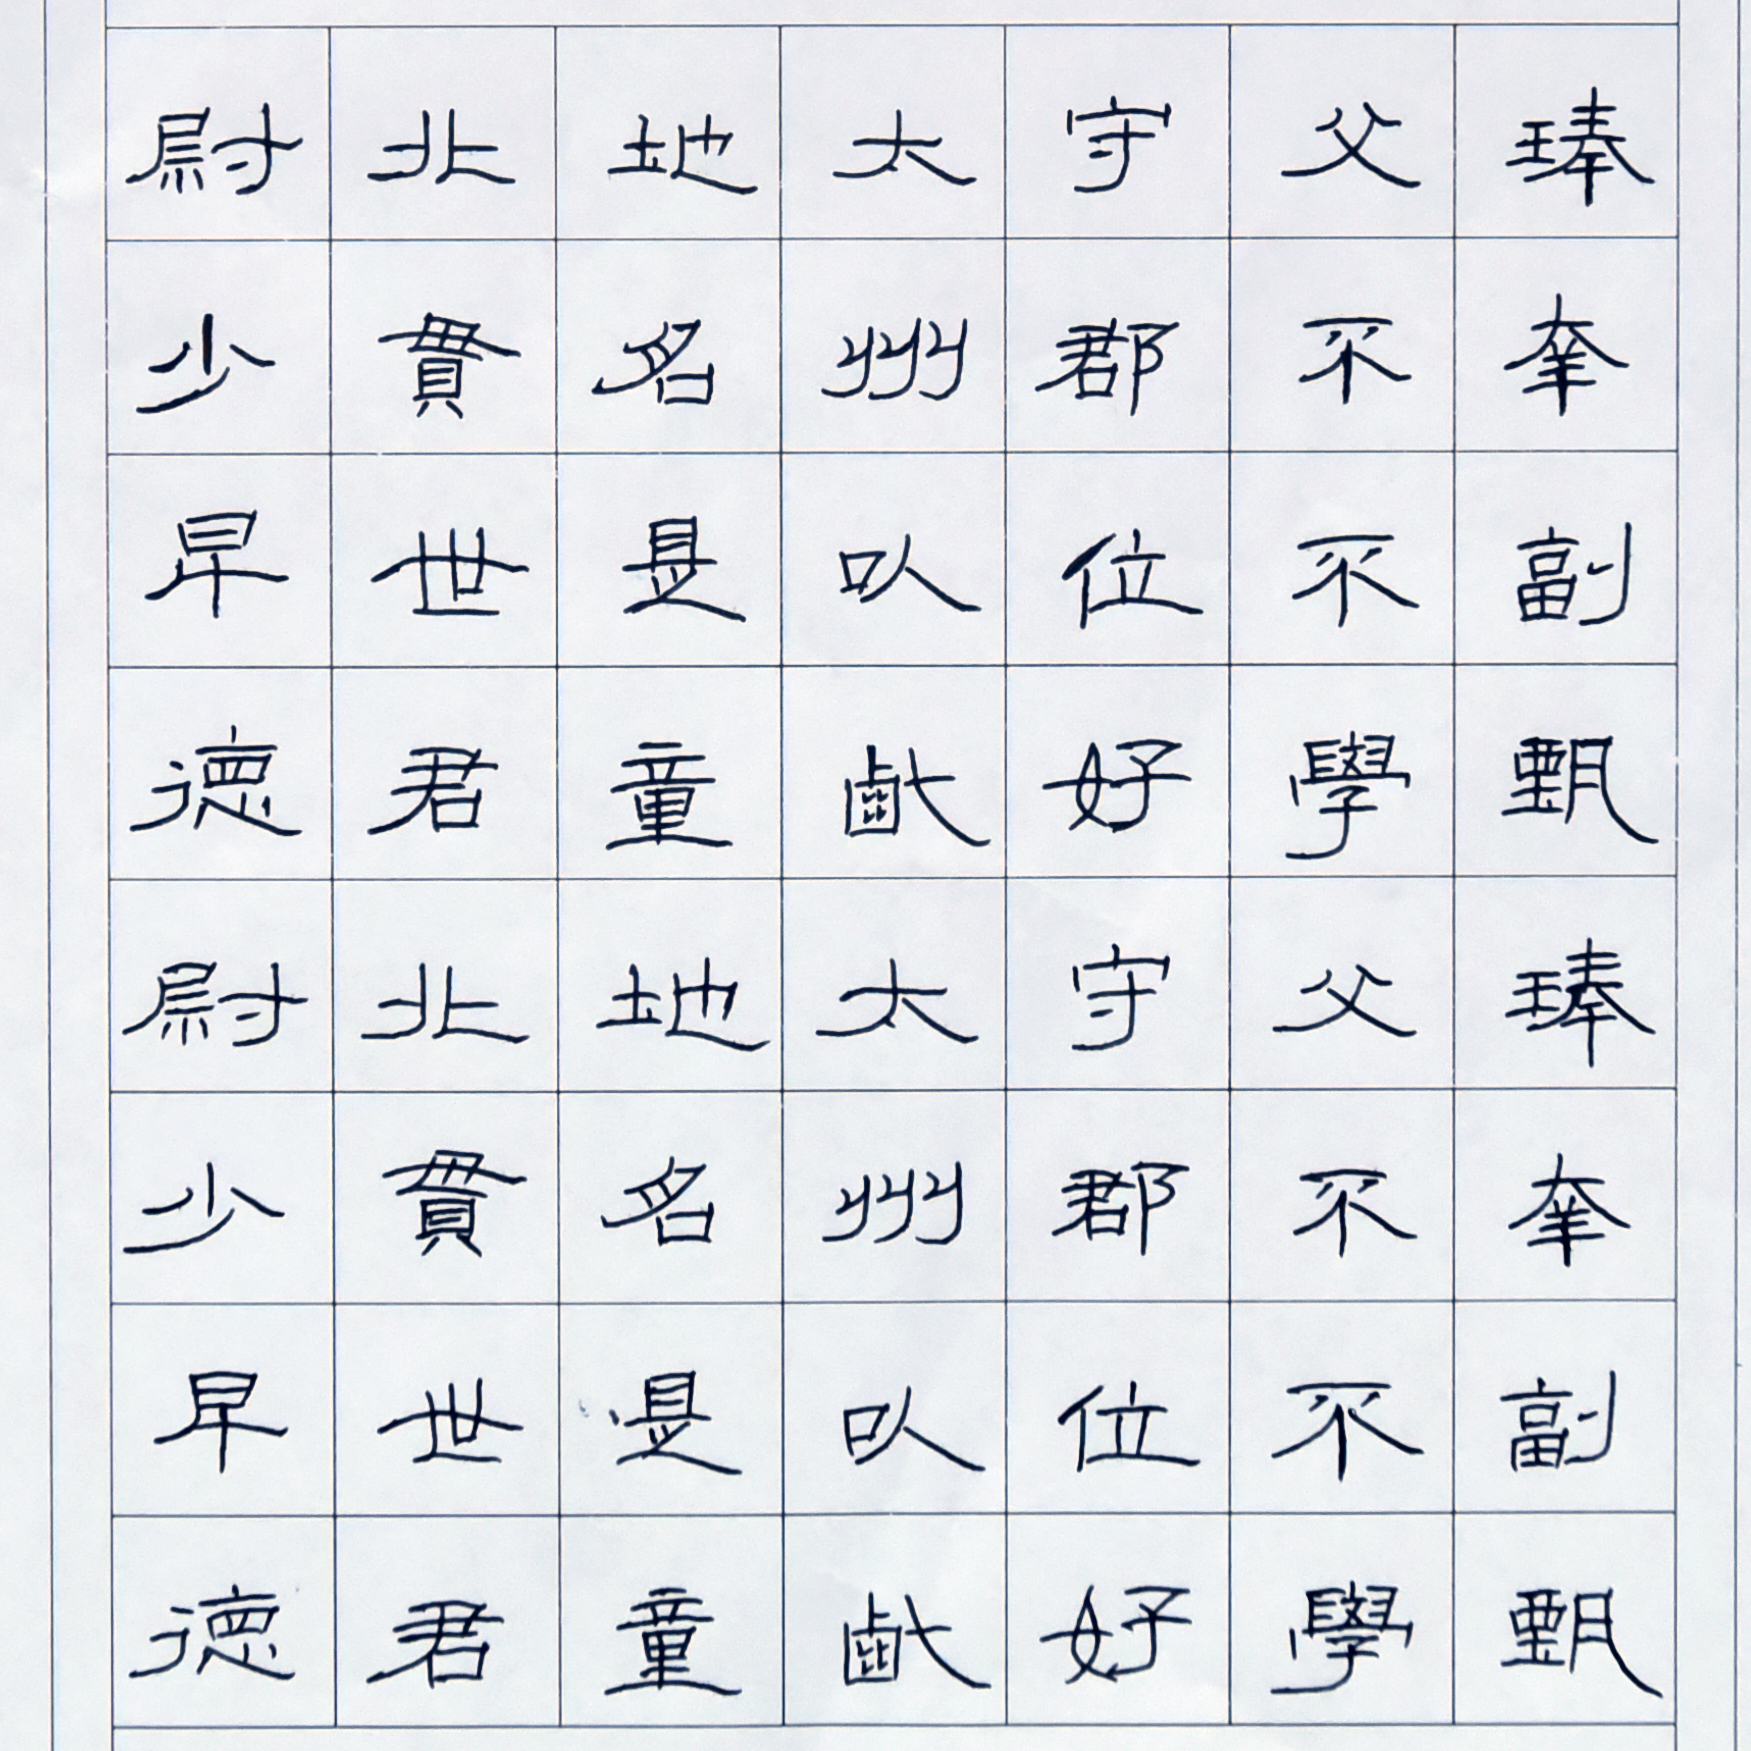 尉北地太守父琫
少貫名州郡不幸
早世是以位不副
德君童齔好學甄
尉北地太守父琫
少貫名州郡不幸
早世是以位不副
德君童齔好學甄